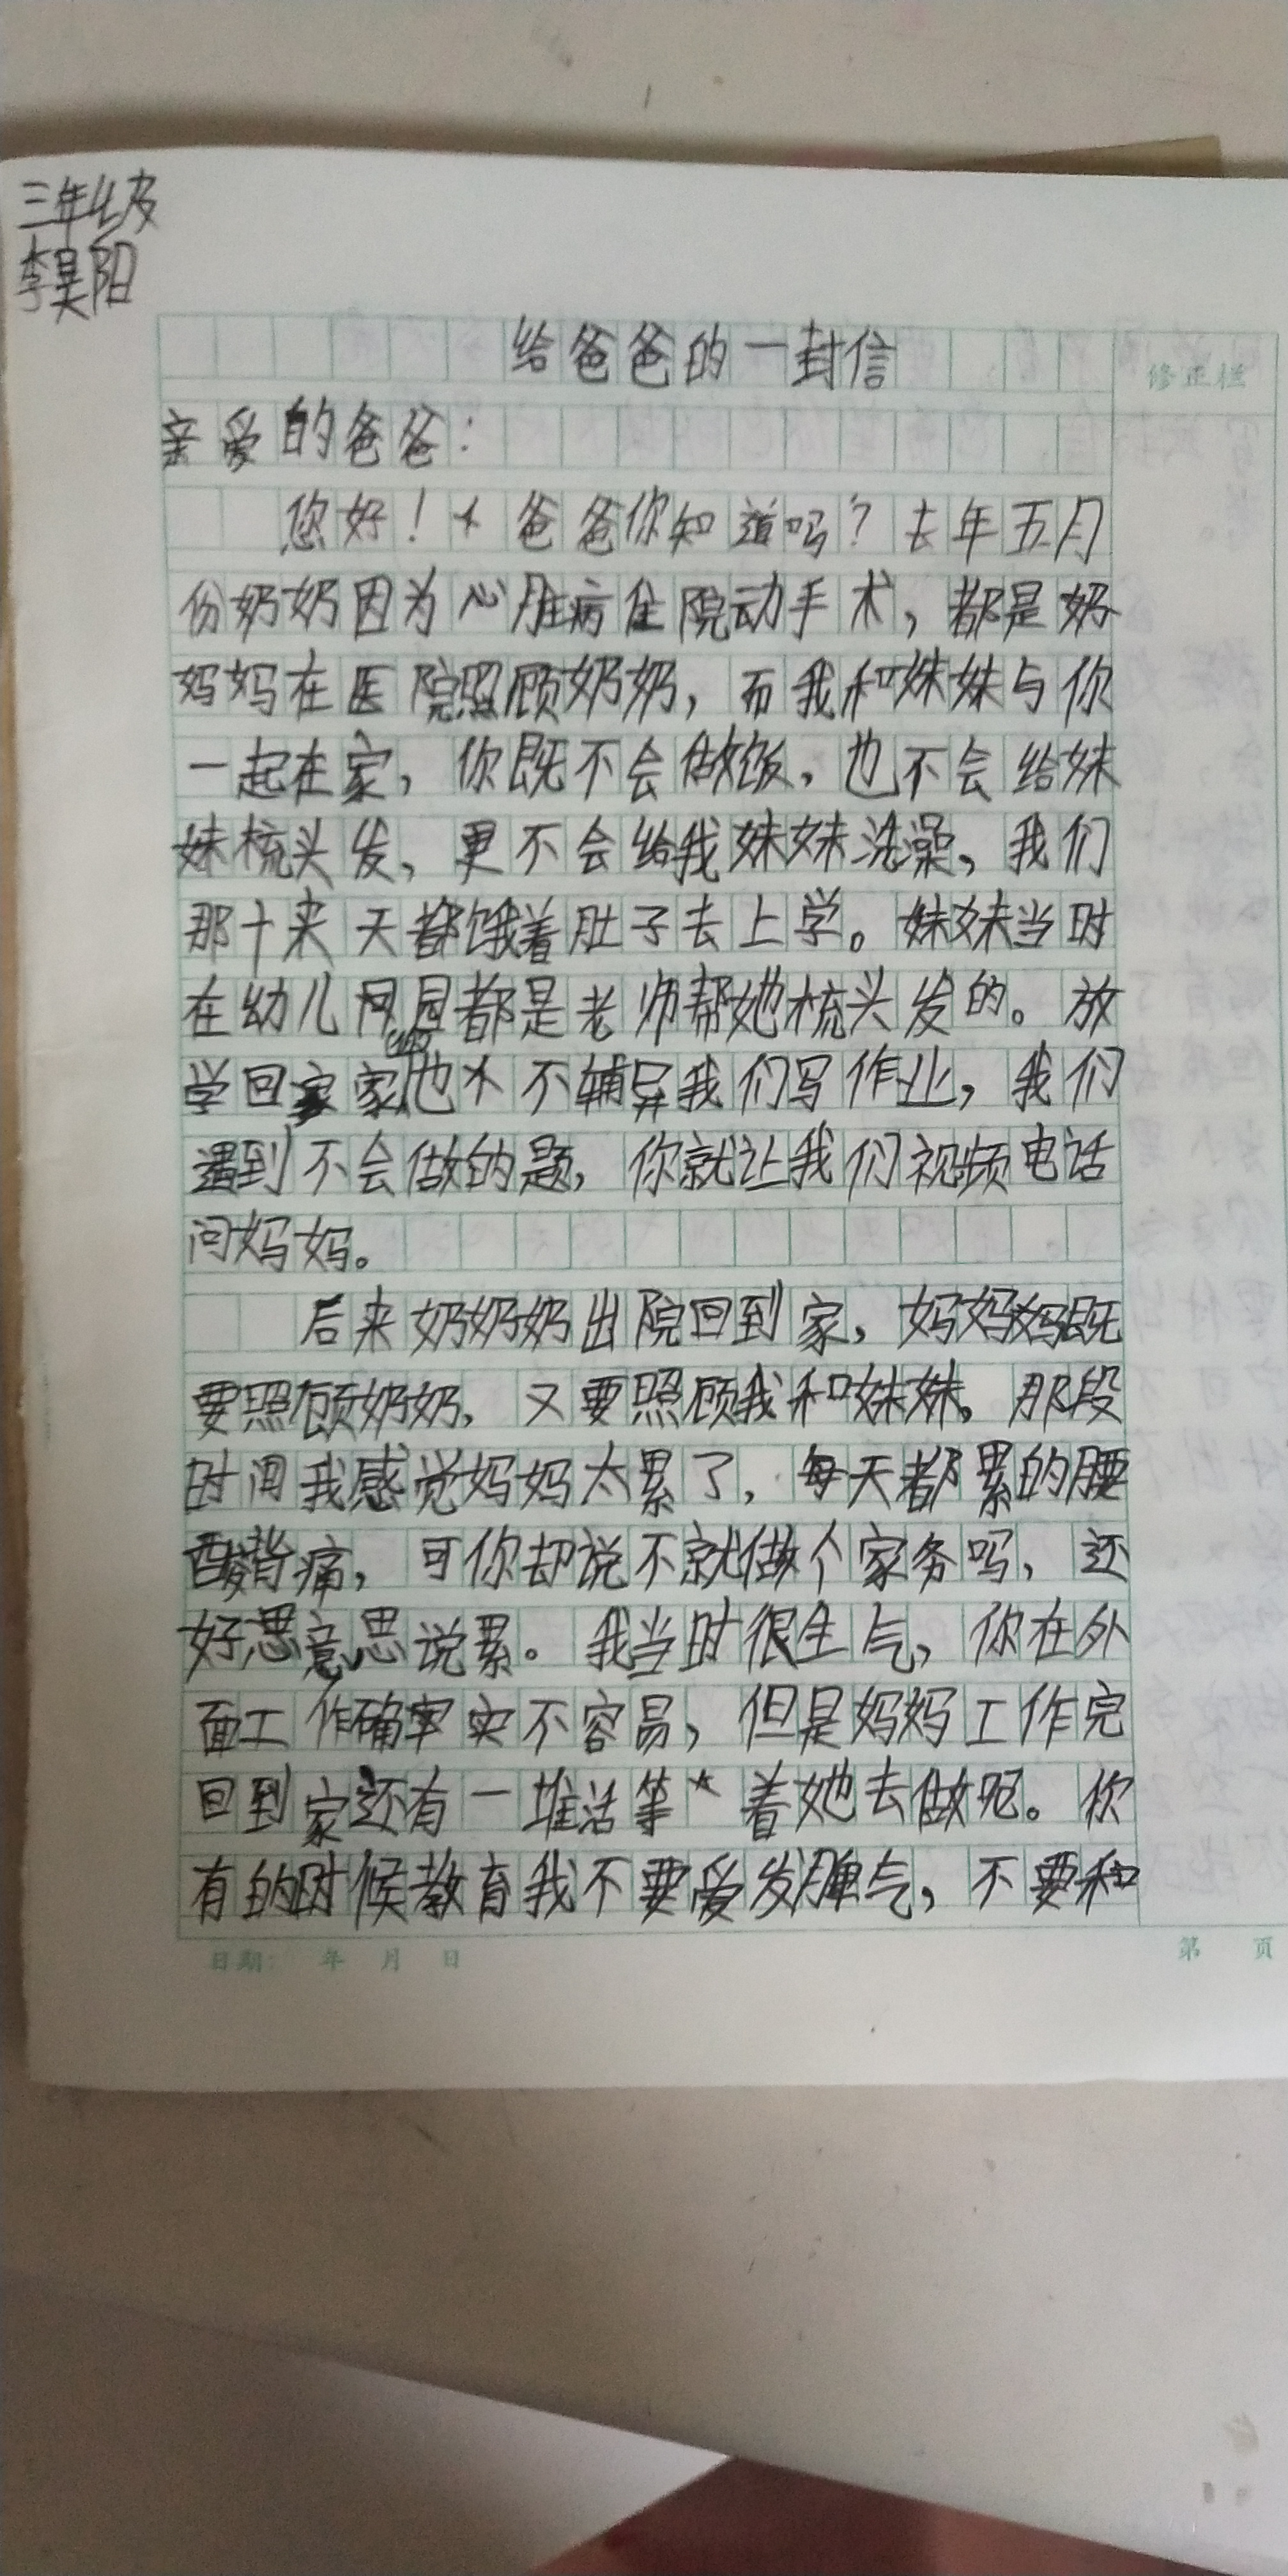 三年七班
李昊阳
给爸爸的一封信
修正栏
亲爱的爸爸：
您好！爸爸你知道吗？去年五月
份奶奶因为心脏病住院动手术，都是奶
妈妈在医院照顾奶奶，而我和妹妹与你
一起在家，你既不会做饭，也不会给妹
妹梳头发，更不会给我妹妹洗澡，我们
那十来天都饿着肚子去上学。妹妹当时
在幼儿园都是老师帮她梳头发的。放
学回家也不辅导我们写作业，我们
遇到不会做的题，你就让我们视频电话
问妈妈。
后来奶奶奶出院回到家，妈妈妈既
要照顾奶奶，又要照顾我和妹妹。那段
时间我感觉妈妈太累了，每天都累的腰
酸背痛，可你却说不就做个家务吗，还
好思意思说累。我当时很生气，你在外
面工作确实不容易，但是妈妈工作完
回到家还有一堆活等着她去做呢。你
有的时候教育我不要爱发脾气，不要和
日期： 年 月 日
第 页